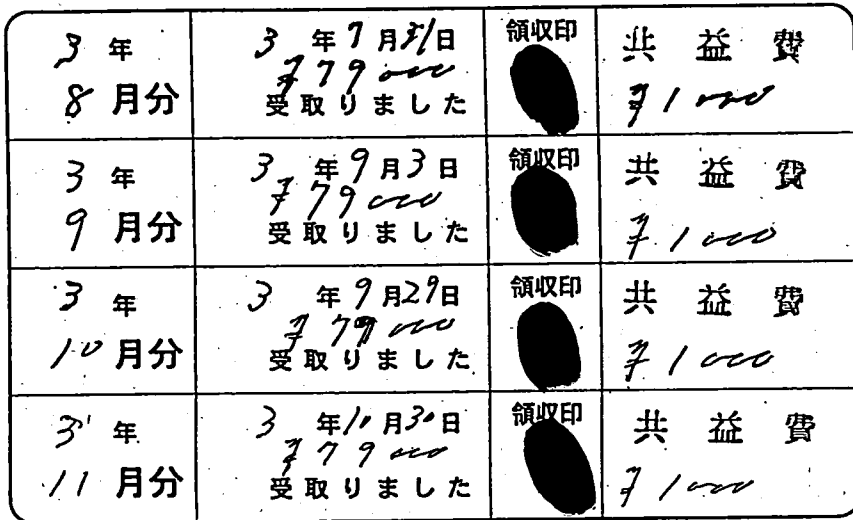 3年
8月分
3年7月31日
¥79000
受取りました
領収印
共益費
¥1000
3年
9月分
3年9月3日
¥79000
受取りました
領収印
共益費
¥1000
3年
10月分
3年9月29日
¥79000
受取りました
領収印
共益費
¥1000
3年
11月分
3年10月30日
¥79000
受取りました
領収印
共益費
¥1000